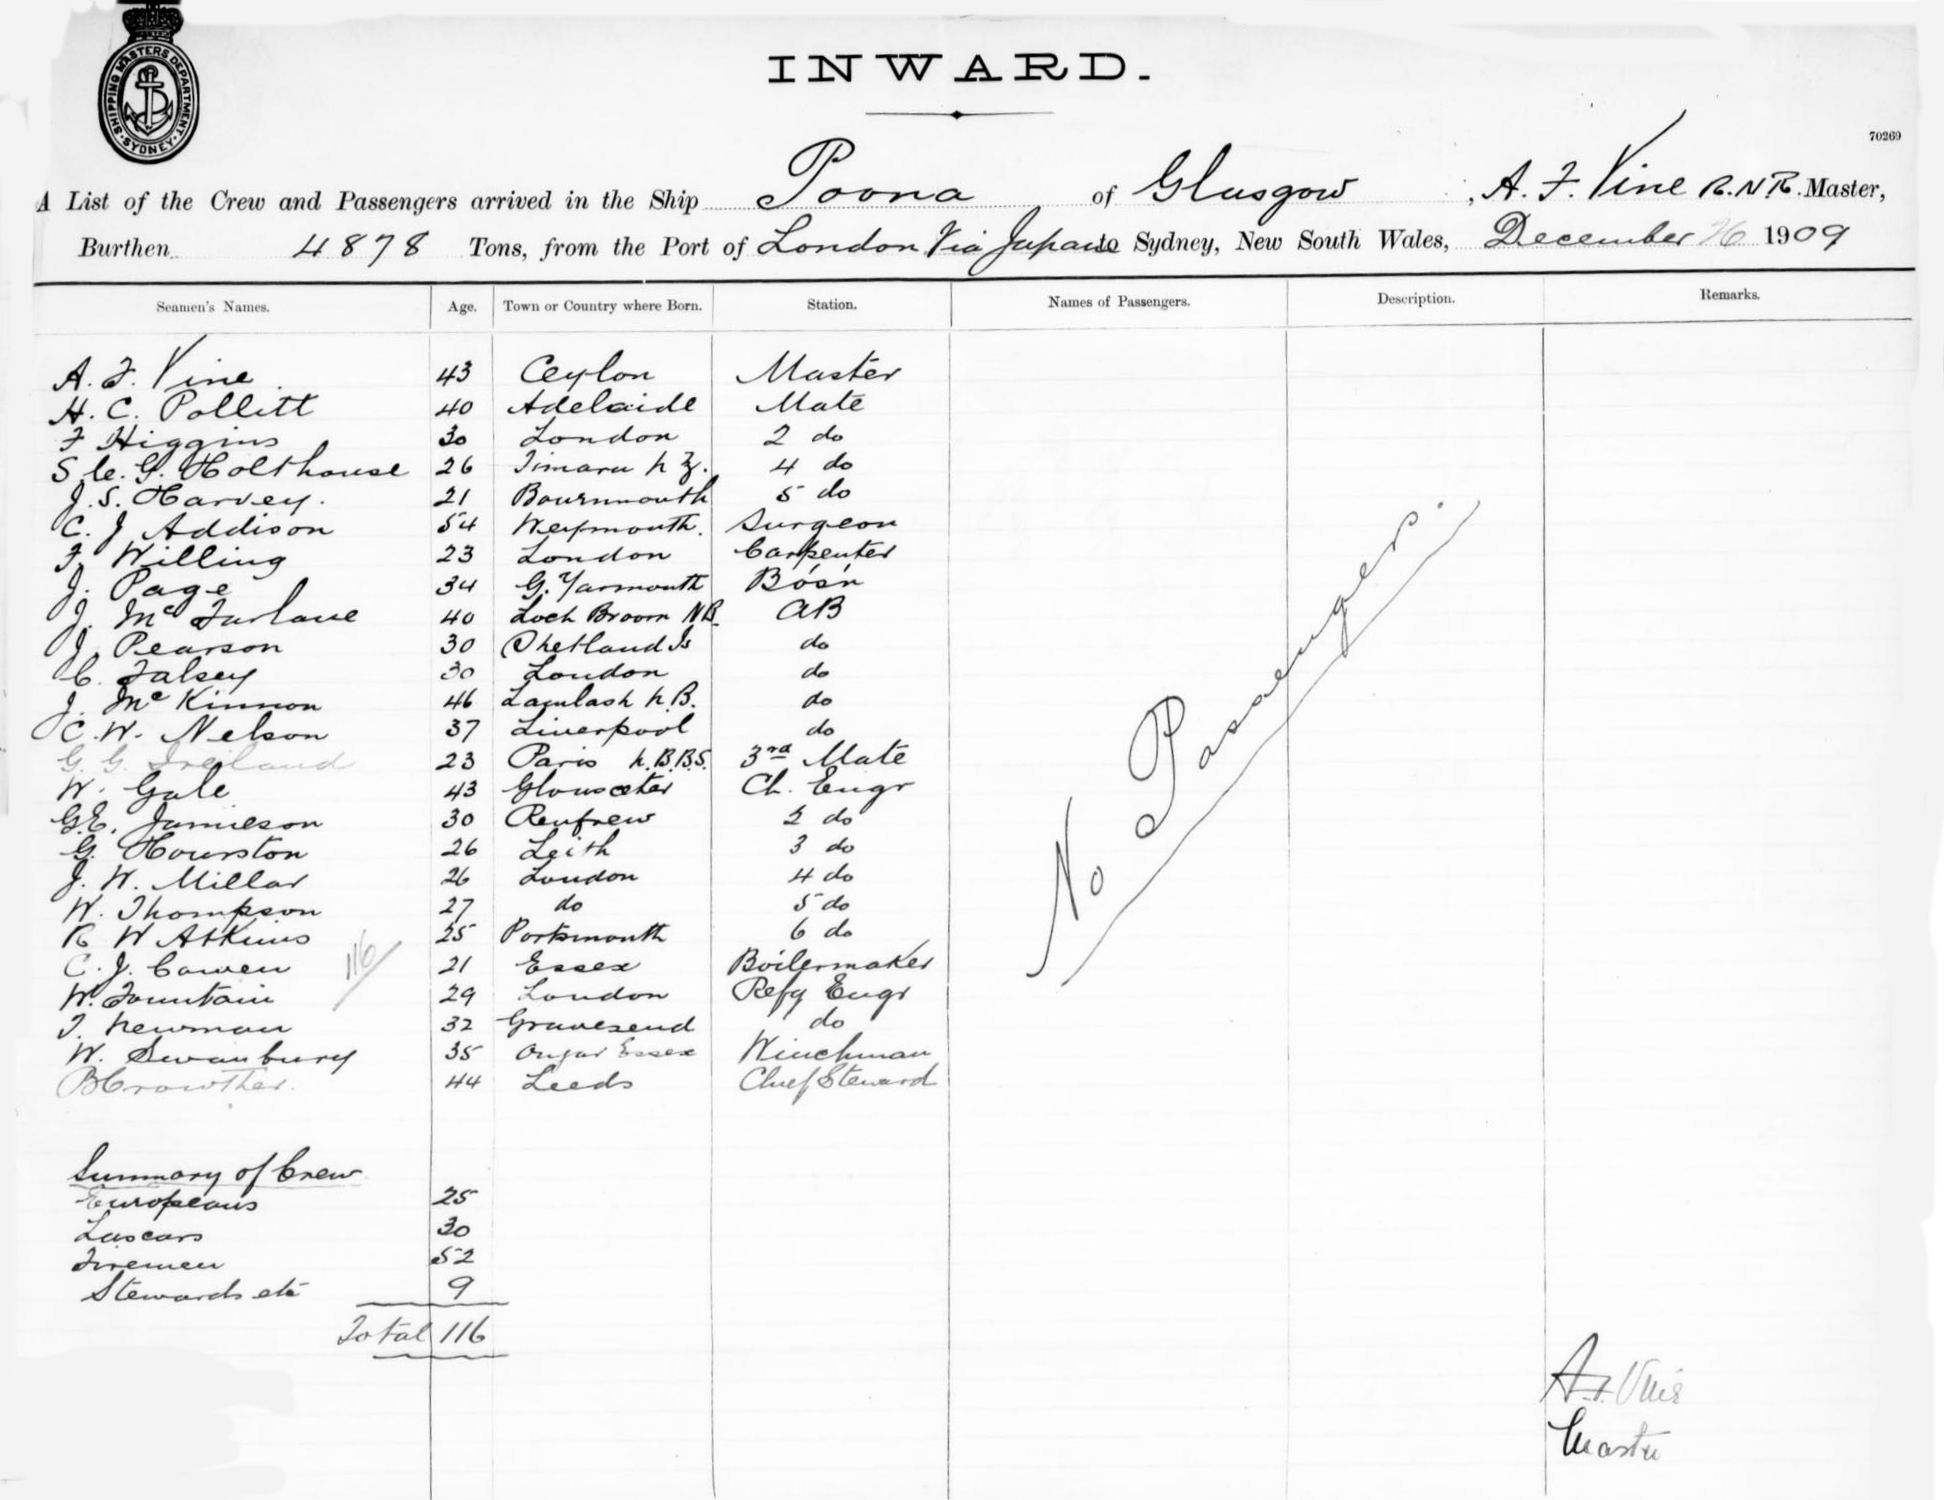 SHIPPING MASTERS DEPARTMENT · SYDNEY ·
INWARD.
70269
A List of the Crew and Passengers arrived in the Ship Poona of Glasgow, A. F. Vine R.N.R. Master,
Burthen 4878 Tons, from the Port of London Via Japan to Sydney, New South Wales, December 26 1909
Seamen's Names. Age. Town or Country where Born. Station. Names of Passengers. Description. Remarks.
A. F. Vine 43 Ceylon Master
H. C. Pollitt 40 Adelaide Mate
F Higgins 30 London 2 do
S. G. Holthouse 26 Timaru N Z. 4 do
J. S. Harvey. 21 Bournmouth 5 do
C. J Addison 54 Weymouth. Surgeon
F. Willing 23 London Carpenter
J. Page 34 G. Yarmouth Bosn
J. McFarlane 40 Loch Broom NB. AB
J. Pearson 30 Shetland Is do
C. Falsey 30 London do
J. McKinnon 46 Lamlash N.B. do
C. W. Nelson 37 Liverpool do
G. G. Ireland 23 Paris 3rd Mate
W. Gale 43 Gloucester Ch. Engr
G.E. Jamieson 30 Renfrew 2 do
G. Hourston 26 Leith 3 do
J. W. Millar 26 London 4 do
W. Thompson 27 do 5 do
R W Atkins 25 Portsmouth 6 do
C. J. Cowen 21 Essex Boilermaker
116
W. Fountain 29 London Refg Engr
T. Newman 32 Gravesend do
W. Swanbury 35 Ongar Essex Winchman
B Crowther. 44 Leeds Chief Steward
No Passengers.
Summary of Crew
Europeans 25
Lascars 30
Firemen 52
Stewards etc 9
Total 116
A. F. Vine
Master